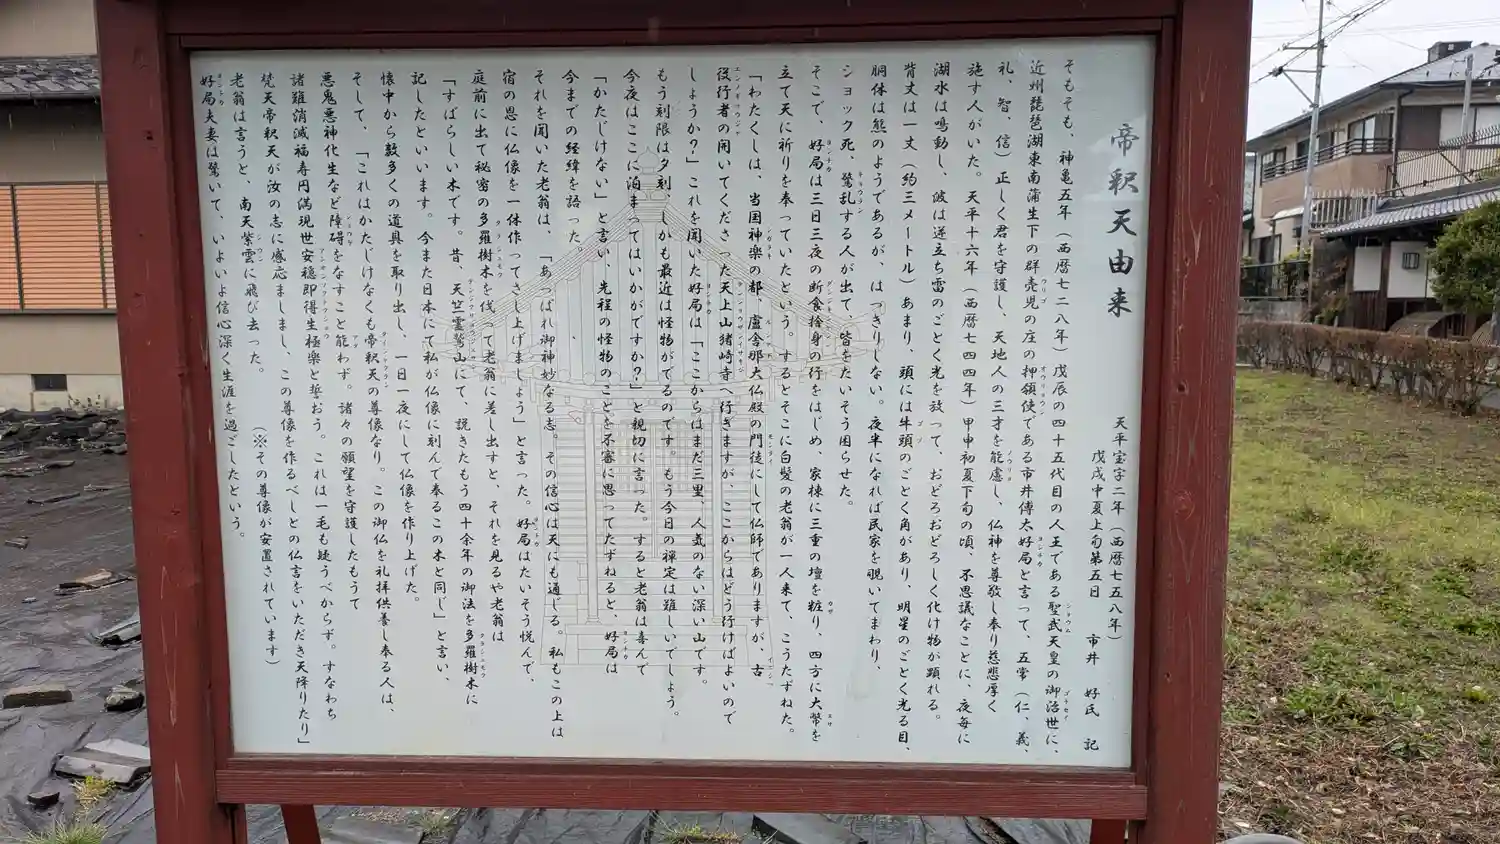 帝釈天由来
天平宝字二年(西暦七五八年)
戊戌中夏上旬第五日 市井 好氏 記
そもそも、神亀五年(西暦七二八年)戊辰の四十五代目の人王である聖武天皇の御治世に、
近州琵琶湖東南蒲生下の群売児の庄の押領使である市井傳太好局と言って、五常(仁、義、
礼、智、信)正しく君を守護し、天地人の三才を能慮し、仏神を尊敬し奉り慈悲厚く
施す人がいた。天平十六年(西暦七四四年)甲申初夏下旬の頃、不思議なことに、夜毎に
湖水は鳴動し、波は逆立ち雷のごとく光を放って、おどろおどろしく化け物が顕れる。
背丈は一丈(約三メートル)あまり、頭には牛頭のごとく角があり、明星のごとく光る目、
胴体は熊のようであるが、はっきりしない。夜半になれば民家を覗いてまわり、
ショック死、驚乱する人が出て、皆をたいそう困らせた。
そこで、好局は三日三夜の断食捨身の行をはじめ、家棟に三重の壇を粧り、四方に大幣を
立て天に祈りを奉っていたという。するとそこに白髪の老翁が一人来て、こうたずねた。
「わたくしは、当国神楽の都、盧舎那大仏殿の門徒にして仏師でありますが、古
役行者の開いてくださった天上山猪崎寺へ行きますが、ここからはどう行けばよいので
しょうか?」これを聞いた好局は「ここからはまだ三里、人気のない深い山です。
もう刻限は夕刻、しかも最近は怪物がでるのです。もう今日の禅定は難しいでしょう。
今夜はここに泊まってはいかがですか?」と親切に言った。すると老翁は喜んで
「かたじけない」と言い、先程の怪物のことを不審に思ってたずねると、好局は
今までの経緯を語った。
それを聞いた老翁は、「あっぱれ御神妙なる志。その信心は天にも通じる。私もこの上は
宿の恩に仏像を一体作ってさし上げましょう」と言った。好局はたいそう悦んで、
庭前に出て秘密の多羅樹木を伐って老翁に差し出すと、それを見るや老翁は
「すばらしい木です。昔、天竺霊鷲山にて、説きたもう四十余年の御法を多羅樹木に
記したといいます。今また日本にて私が仏像に刻んで奉るこの木と同じ」と言い、
懐中から数多くの道具を取り出し、一日一夜にして仏像を作り上げた。
そして、「これはかたじけなくも帝釈天の尊像なり。この御仏を礼拝供養し奉る人は、
悪鬼悪神化生など障碍をなすこと能わず。諸々の願望を守護したもうて
諸難消滅福寿円満現世安穏即得生極楽と誓おう。これは一毛も疑うべからず。すなわち
梵天帝釈天が汝の志に感応ましまし、この尊像を作るべしとの仏言をいただき天降りたり」
老翁は言うと、南天紫雲に飛び去った。 (※その尊像が安置されています)
好局夫妻は驚いて、いよいよ信心深く生涯を過ごしたという。